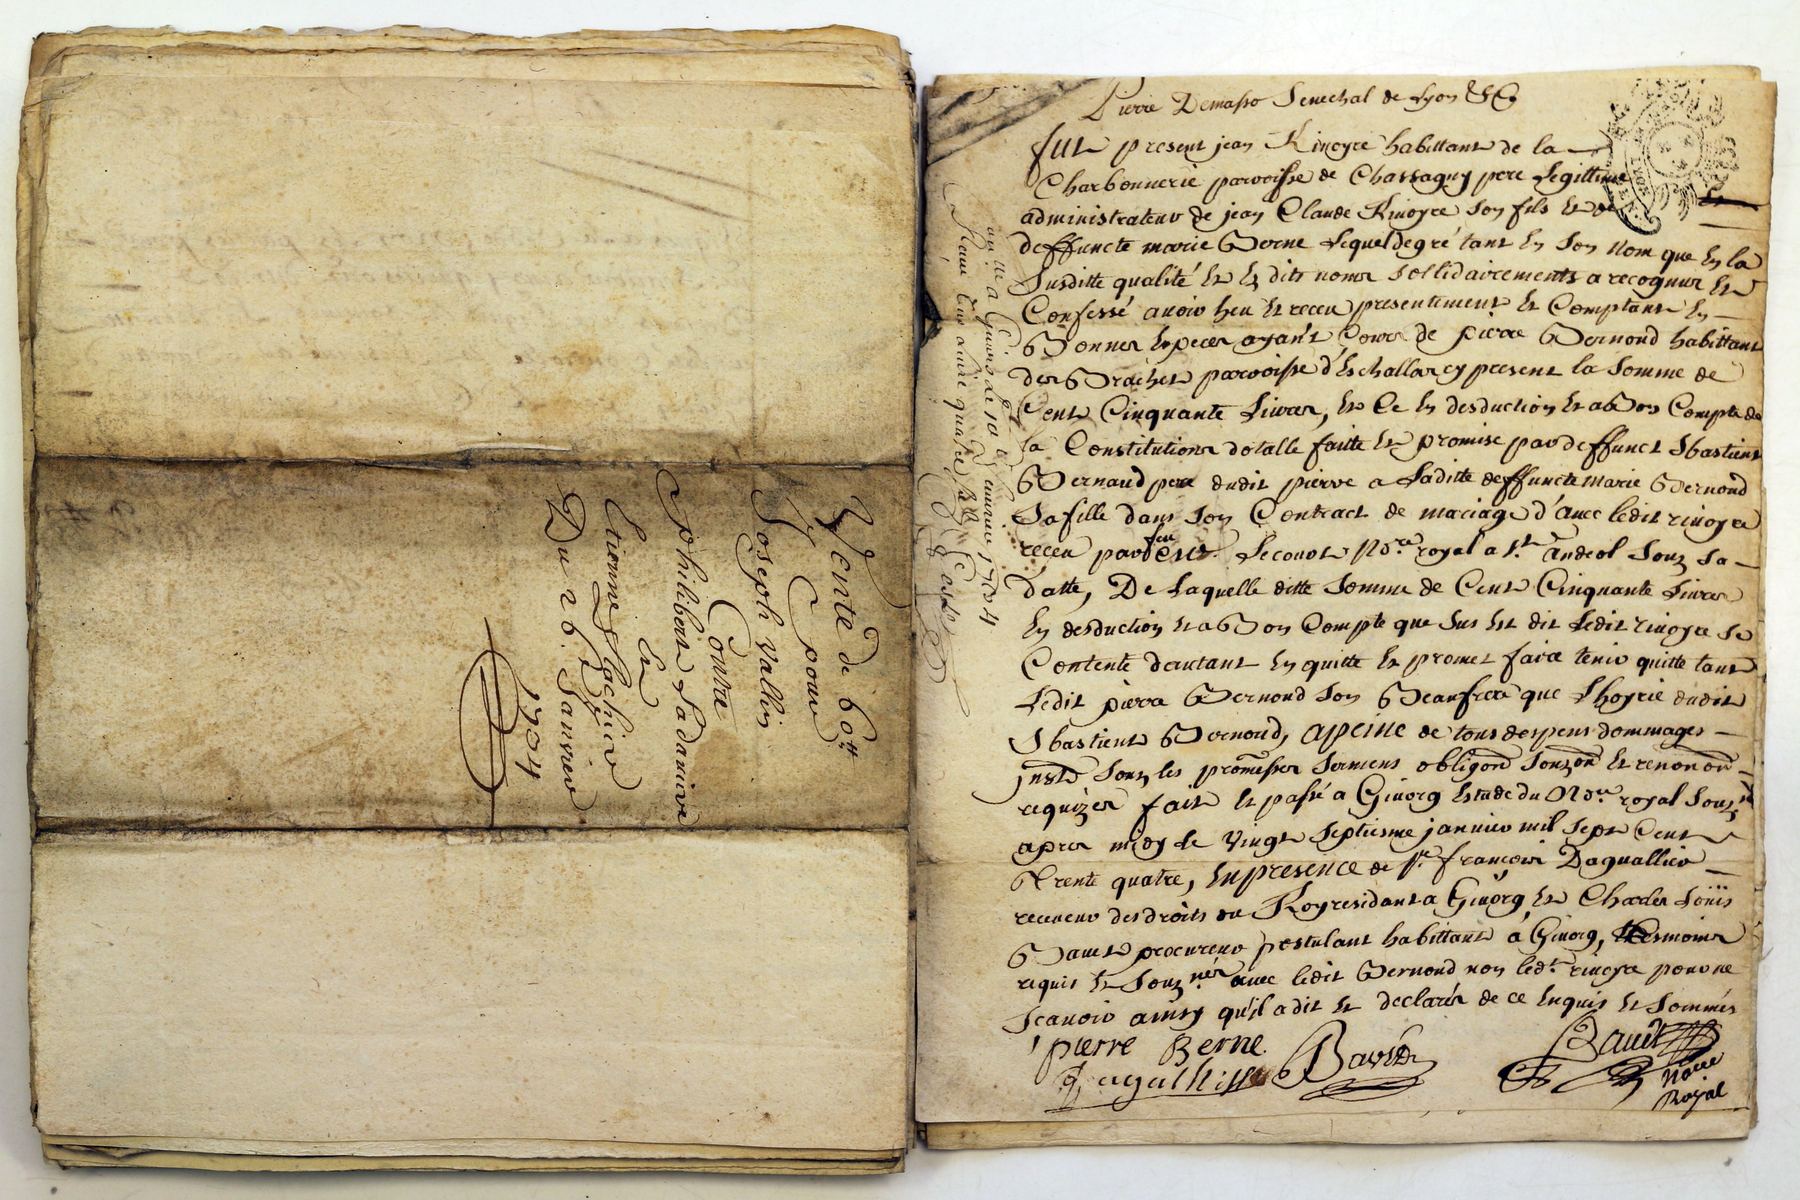 Vente de 60tt
pour
Joseph Vallin
Contre
Philibert
Et
Etienne Flachire
Du 26 Janvier
1734
Pierre Demasso Senechal de Lyon &C
fut present jean Rivoyre habittant de la
Charbonnerie parroisse de Chassagny pere Legittime
administrateur de jean Claude Rivoyre son fils et de
deffuncte marie Berne Lequel de gré tant En son nom que En la
susditte qualité Et Es dits noms sollidairements a recognur Et
Confessé avoir heu et receu presentement Et Comptant En
Bonnes Especes ayant Cours de pierre Bernond habittant
des Braches parroisse d'Eschallas cy present la somme de
Cent Cinquante Livres, Et Ce En desduction Et a Bon Compte de
la Constitution dotalle faitte Et promise par deffunct Sbastient
Bernaud pere dudit pierre a Laditte deffuncte marie Bernond
sa fille dans son Contract de mariage d'avec ledit rivoyre
receu par feu Me Lecourt Nore royal a St Andeol souz sa
datte, De Laquelle ditte somme de Cent Cinquante Livres
En desduction Et a Bon Compte que sus Est dit Ledit rivoyre se
Contente d'autant En quitte Et promet faire tenir quitte tant
Ledit pierre Bernond son Beaufrere que Lhoyrie dudit
Sbastient Bernond, a peine de tous despens dommages
jnsts souz les promesses sermens obligons souzons et renonons
requizes fait Et passé a Givorg Estude du Nore royal souzné
apres midy le vingt septiesme janvier mil sept Cent
Trente quatre, En presence de sr françois Daguallier
receveur des droits du Roy residant a Givorg Et Charles Louis
Bauet procureur postulant habittant a Givorg, tesmoins
requis Et souznés avec ledit Bernond non ledt rivoyre pour ne
scavoir ainsy qu'il a dit Et declarés de ce Enquis Et sommés
pierre Berne
Bavet
Bauet
Nore
Royal
a Givors le 10 feuvrier 1734
Receu